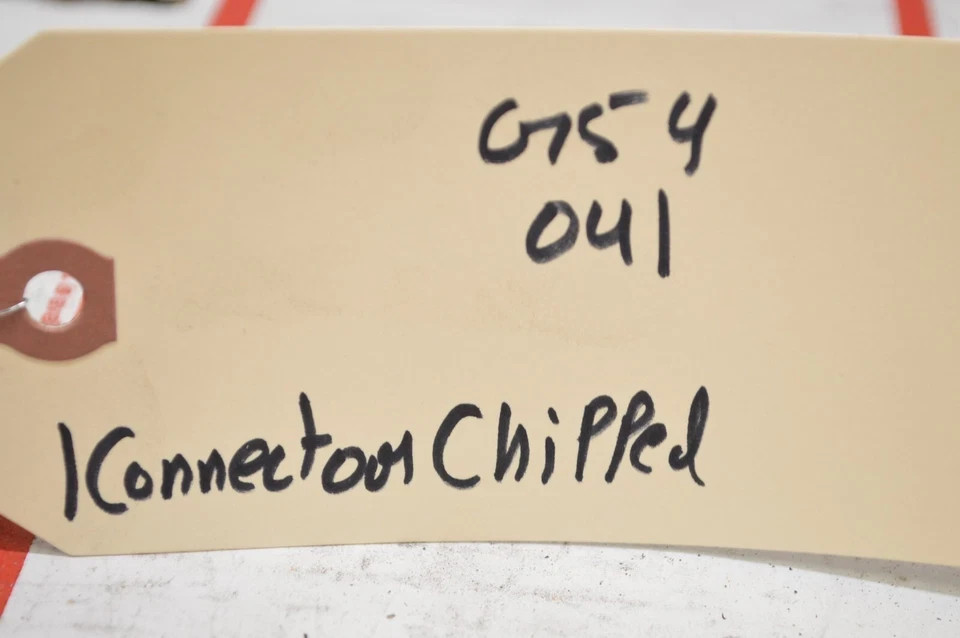 G75 4
041
1 Connectoor Chipped